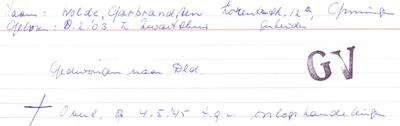 Naam: Wolde, Garbrand ten Lozerstr. 12a, Gronningen
Geboren: 8.2.03. Z Zwartsluis Arbeider
Gedwongen naar Dld.
GV
Overl. op 4.5.'45 t.g.v. oorlogshandelingen